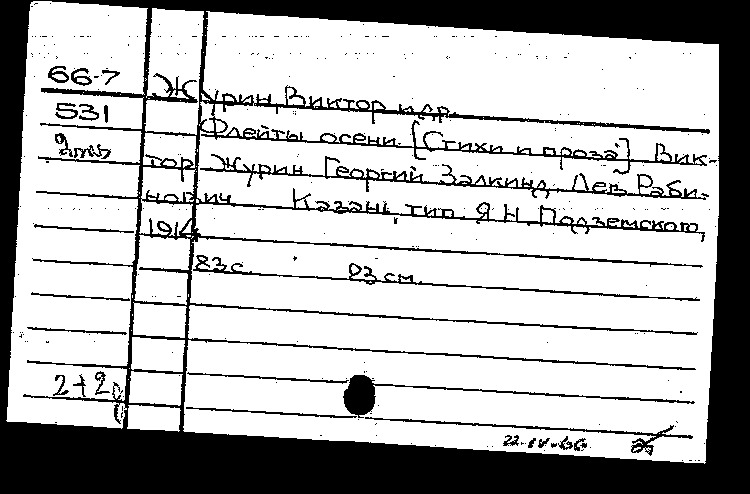 66-7 Журин, Виктор и др.
531 Флейты осени. [Стихи и проза]. Вик-
тор Журин, Георгий Залкинд, Лев Раби-
нович. Казань, тип. Я.Н. Подземского,
1914
83 с. 23 см.
2+2
22.IV-66